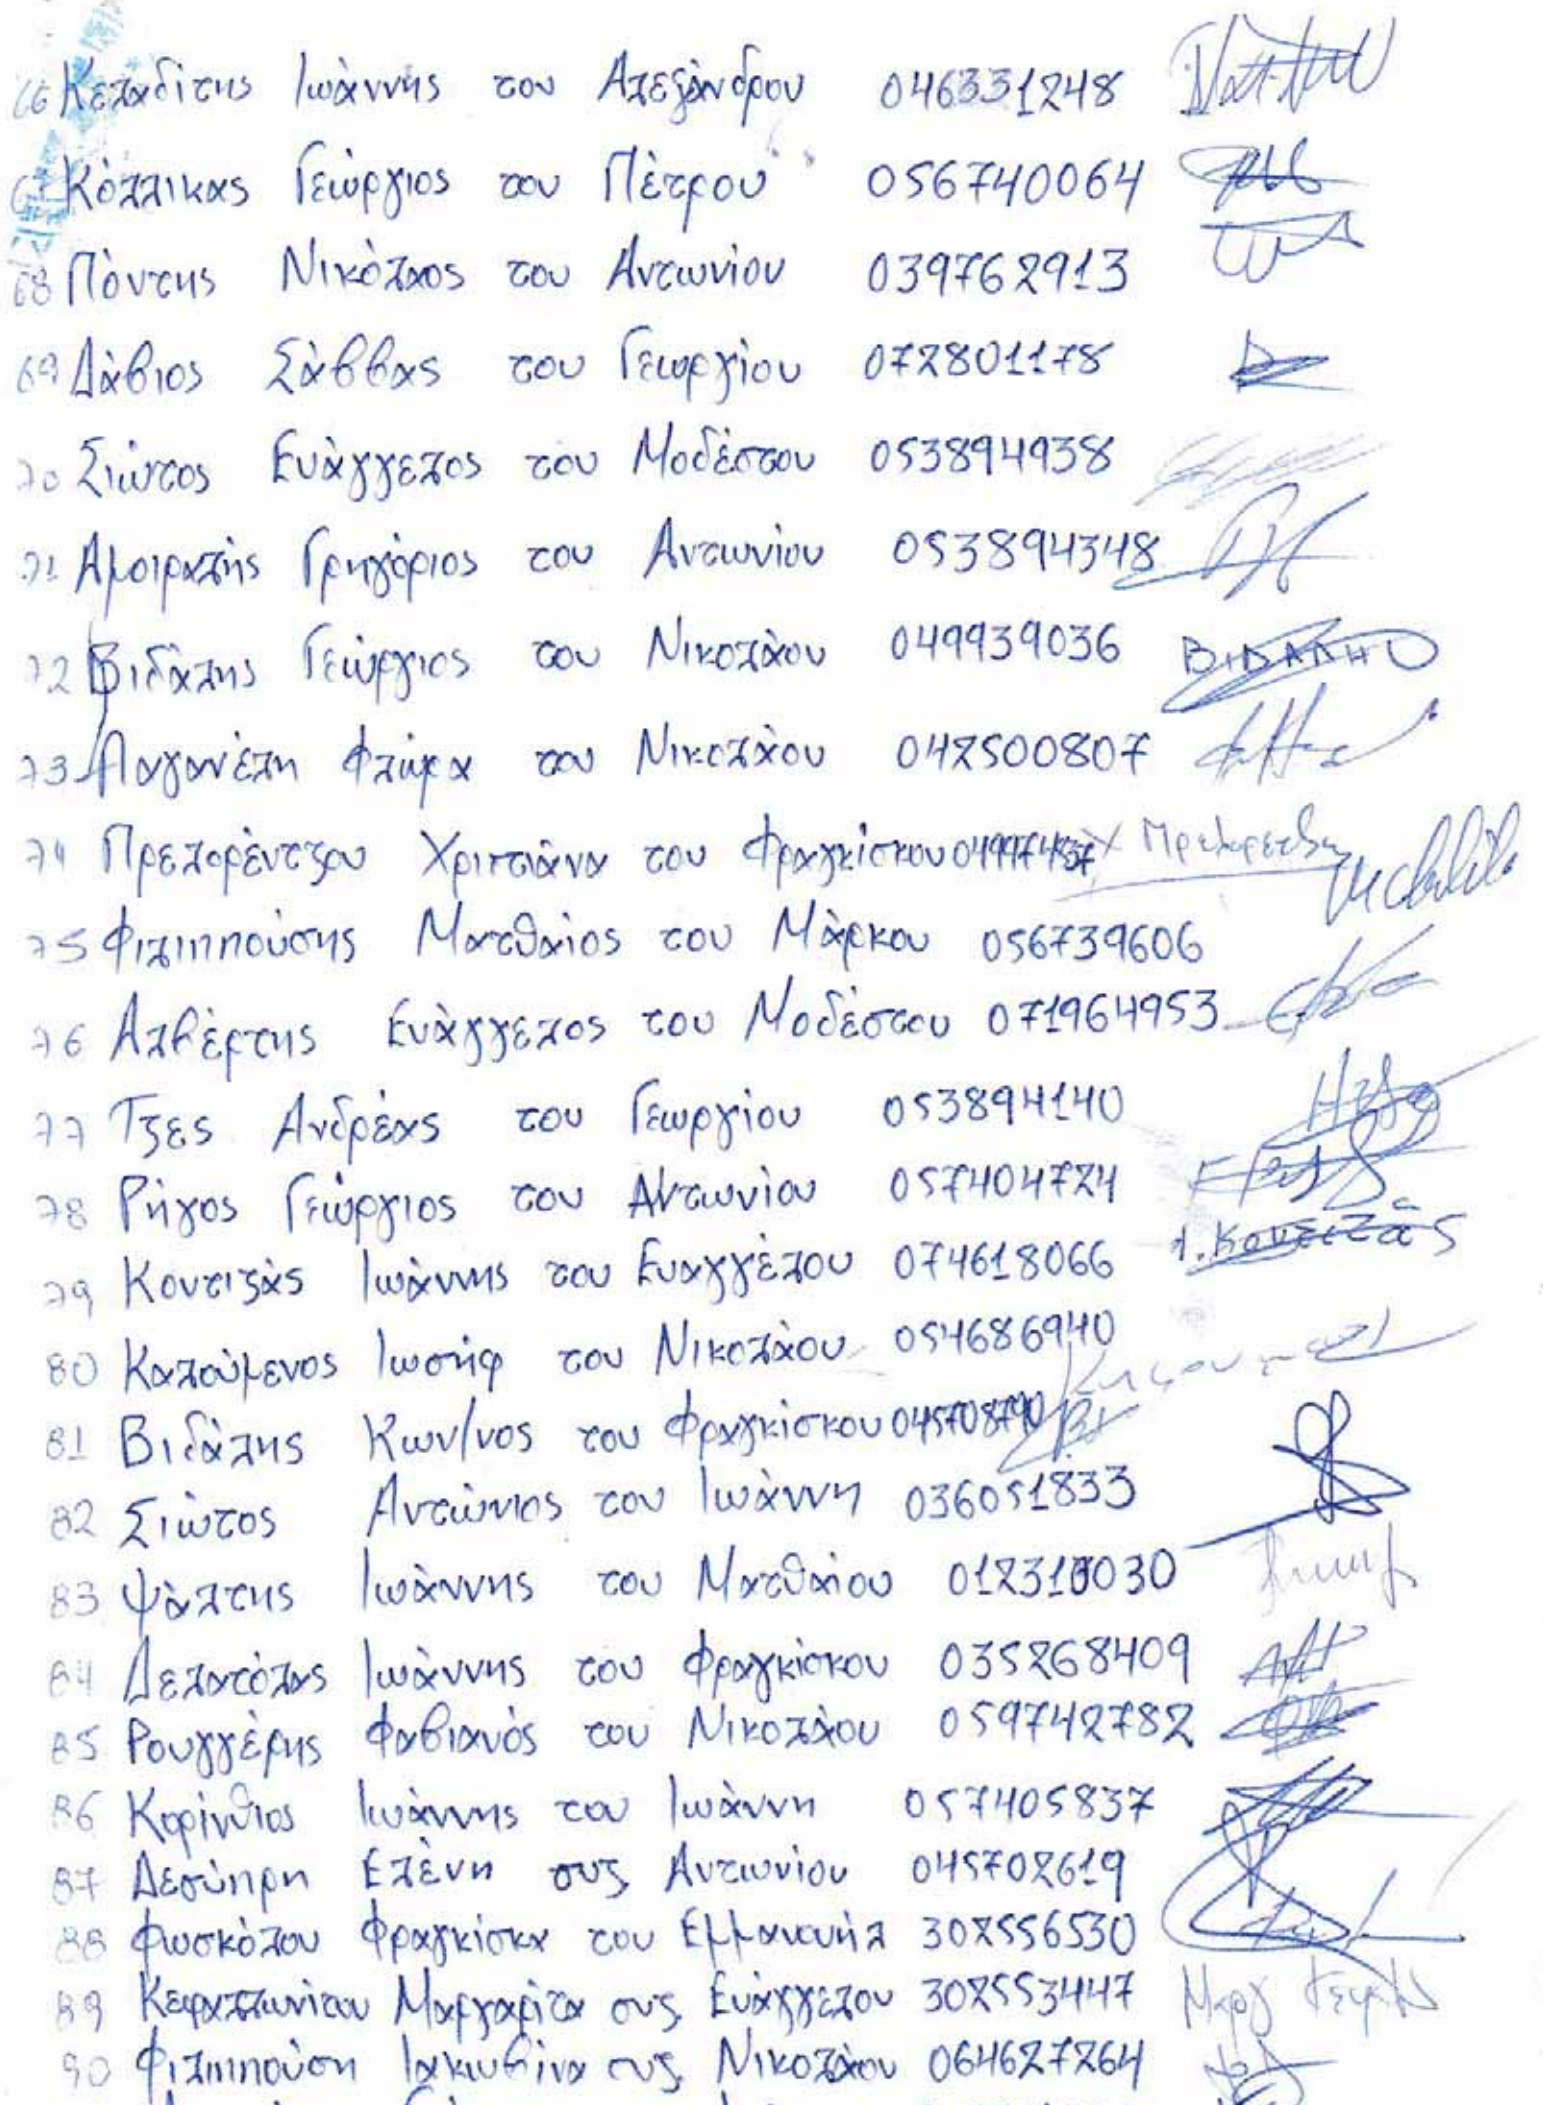 66 Κελαδίτης Ιωάννης του Αλεξάνδρου 046331248
67 Κόλλικας Γεώργιος του Πέτρου 056740064
68 Πόντης Νικόλαος του Αντωνίου 039762913
69 Δάβιος Σάββας του Γεωργίου 072801178
70 Σιώτος Ευάγγελος του Μοδέστου 053894938
71 Αμοιραλής Γρηγόριος του Αντωνίου 053894348
72 Βιδάλης Γεώργιος του Νικολάου 049939036 ΒΙΔΑΛΗΣ
73 Παγανέλη Φλώρα του Νικολάου 042500807
74 Πρελορέντζου Χριστιάνα του Φραγκίσκου
75 Φιλιππούσης Ματθαίος του Μάρκου 056739606
76 Αλβέρτης Ευάγγελος του Μοδέστου 071964953
77 Τζες Ανδρέας του Γεωργίου 053894140
78 Ρήγος Γεώργιος του Αντωνίου 057404724
79 Κοντιζάς Ιωάννης του Ευαγγέλου 074618066 Ι. Κοντιζάς
80 Καλούμενος Ιωσήφ του Νικολάου 054686940
81 Βιδάλης Κων/νος του Φραγκίσκου 045708790
82 Σιώτος Αντώνιος του Ιωάννη 036051833
83 Ψάλτης Ιωάννης του Ματθαίου 012310030
84 Δελατόλας Ιωάννης του Φραγκίσκου 035268409
85 Ρουγγέρης Φαβιανός του Νικολάου 059742782
86 Κορίνθιος Ιωάννης του Ιωάννη 057405837
87 Δεσύπρη Ελένη συζ Αντωνίου 045702619
88 Φωσκόλου Φραγκίσκα του Εμμανουήλ 302556530
89 Κεφαλλωνίτου Μαργαρίτα συζ Ευάγγελου 302553447
90 Φιλιππούση Ιακωβίνα συζ Νικολάου 064627264